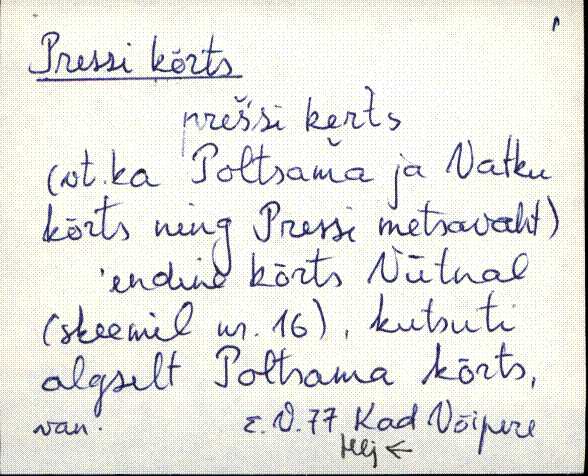 Pressi kõrts
prešsi kẹrts
(vt. ka Poltsama ja Natku
kõrts ning Pressi metsavaht)
'endine kõrts Viitnal
(skeemil nr. 16), kutsuti
algselt Poltsama kõrts,
van. Kad Võipere
Hlj ←